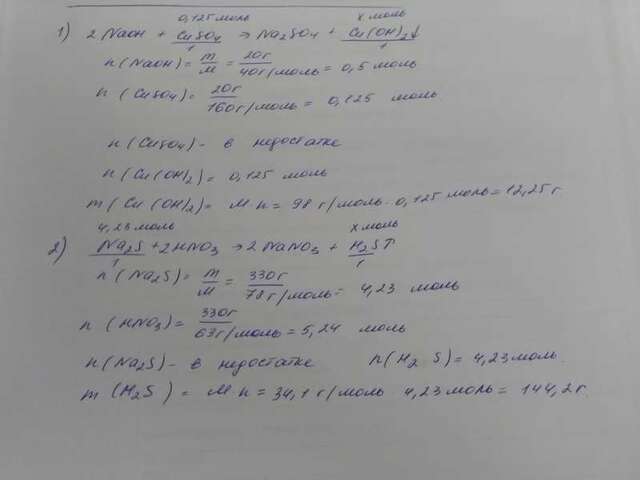 0,125 моль x моль
1) 2 NaOH + CuSO4 → Na2SO4 + Cu(OH)2↓
1 1
n(NaOH) = m/M = 20г/40г/моль = 0,5 моль
n(CuSO4) = 20г/160г/моль = 0,125 моль
n(CuSO4) - в недостатке
n(Cu(OH)2) = 0,125 моль
m(Cu(OH)2) = M·n = 98 г/моль · 0,125 моль = 12,25 г.
4,23 моль x моль
2) Na2S + 2HNO3 → 2 NaNO3 + H2S↑
1 1
n(Na2S) = m/M = 330г/78г/моль = 4,23 моль
n(HNO3) = 330г/63г/моль = 5,24 моль
n(Na2S) - в недостатке n(H2S) = 4,23 моль.
m(H2S) = M·n = 34,1 г/моль · 4,23 моль = 144,2 г.